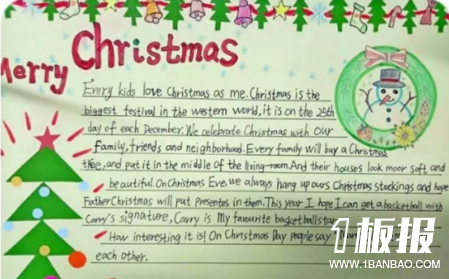 Merry Christmas
Every kids love Christmas as me. Christmas is the
biggest festival in the western world, it is on the 25th
day of each December. We celebrate Christmas with our
family, friends and neighborhood. Every family will buy a Christmas
tree, and put it in the middle of the living-room. And their houses look moor soft and
beautiful. On Christmas Eve, we always hang up ours Christmas stockings and hope
Father Christmas will put presentes in them. This year I hope I can get a basketball with
Carry's signature, Cavry is My favourite basketball star
How interesting it is! On Christmas Day people say
each other.
1板报
WWW.1BANBAO.COM